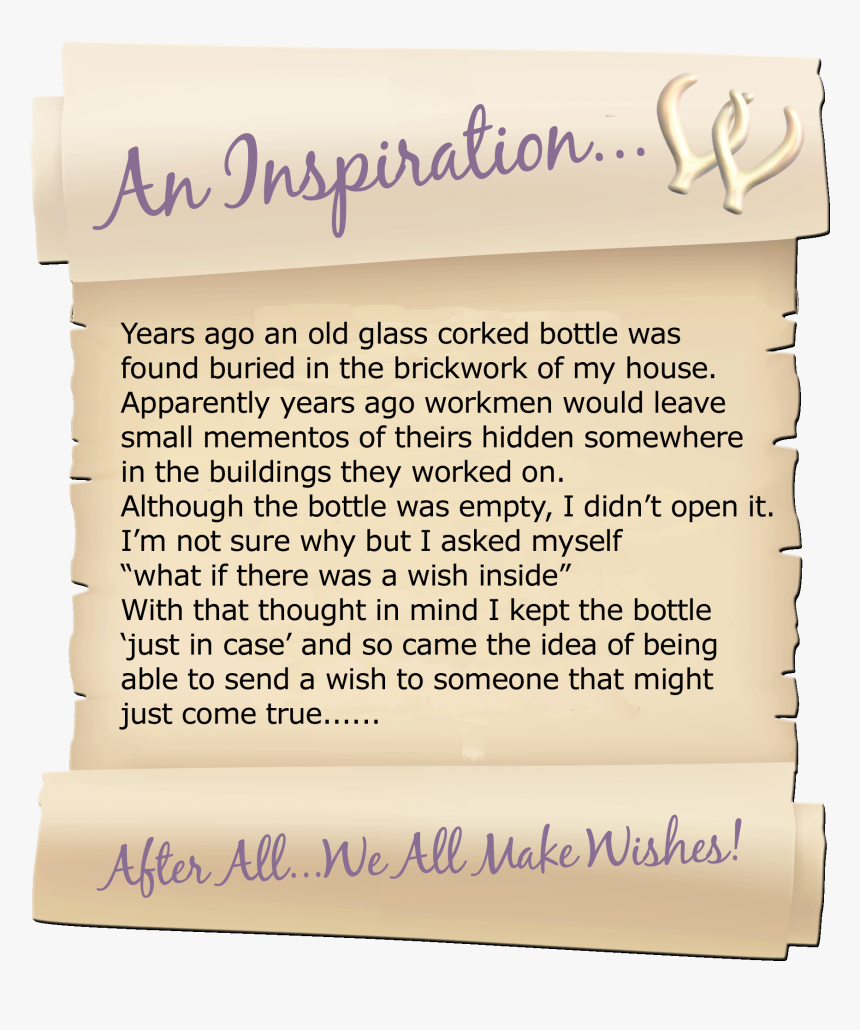 An Inspiration...
Years ago an old glass corked bottle was
found buried in the brickwork of my house.
Apparently years ago workmen would leave
small mementos of theirs hidden somewhere
in the buildings they worked on.
Although the bottle was empty, I didn’t open it.
I’m not sure why but I asked myself
“what if there was a wish inside”
With that thought in mind I kept the bottle
‘just in case’ and so came the idea of being
able to send a wish to someone that might
just come true......
After All...We All Make Wishes!